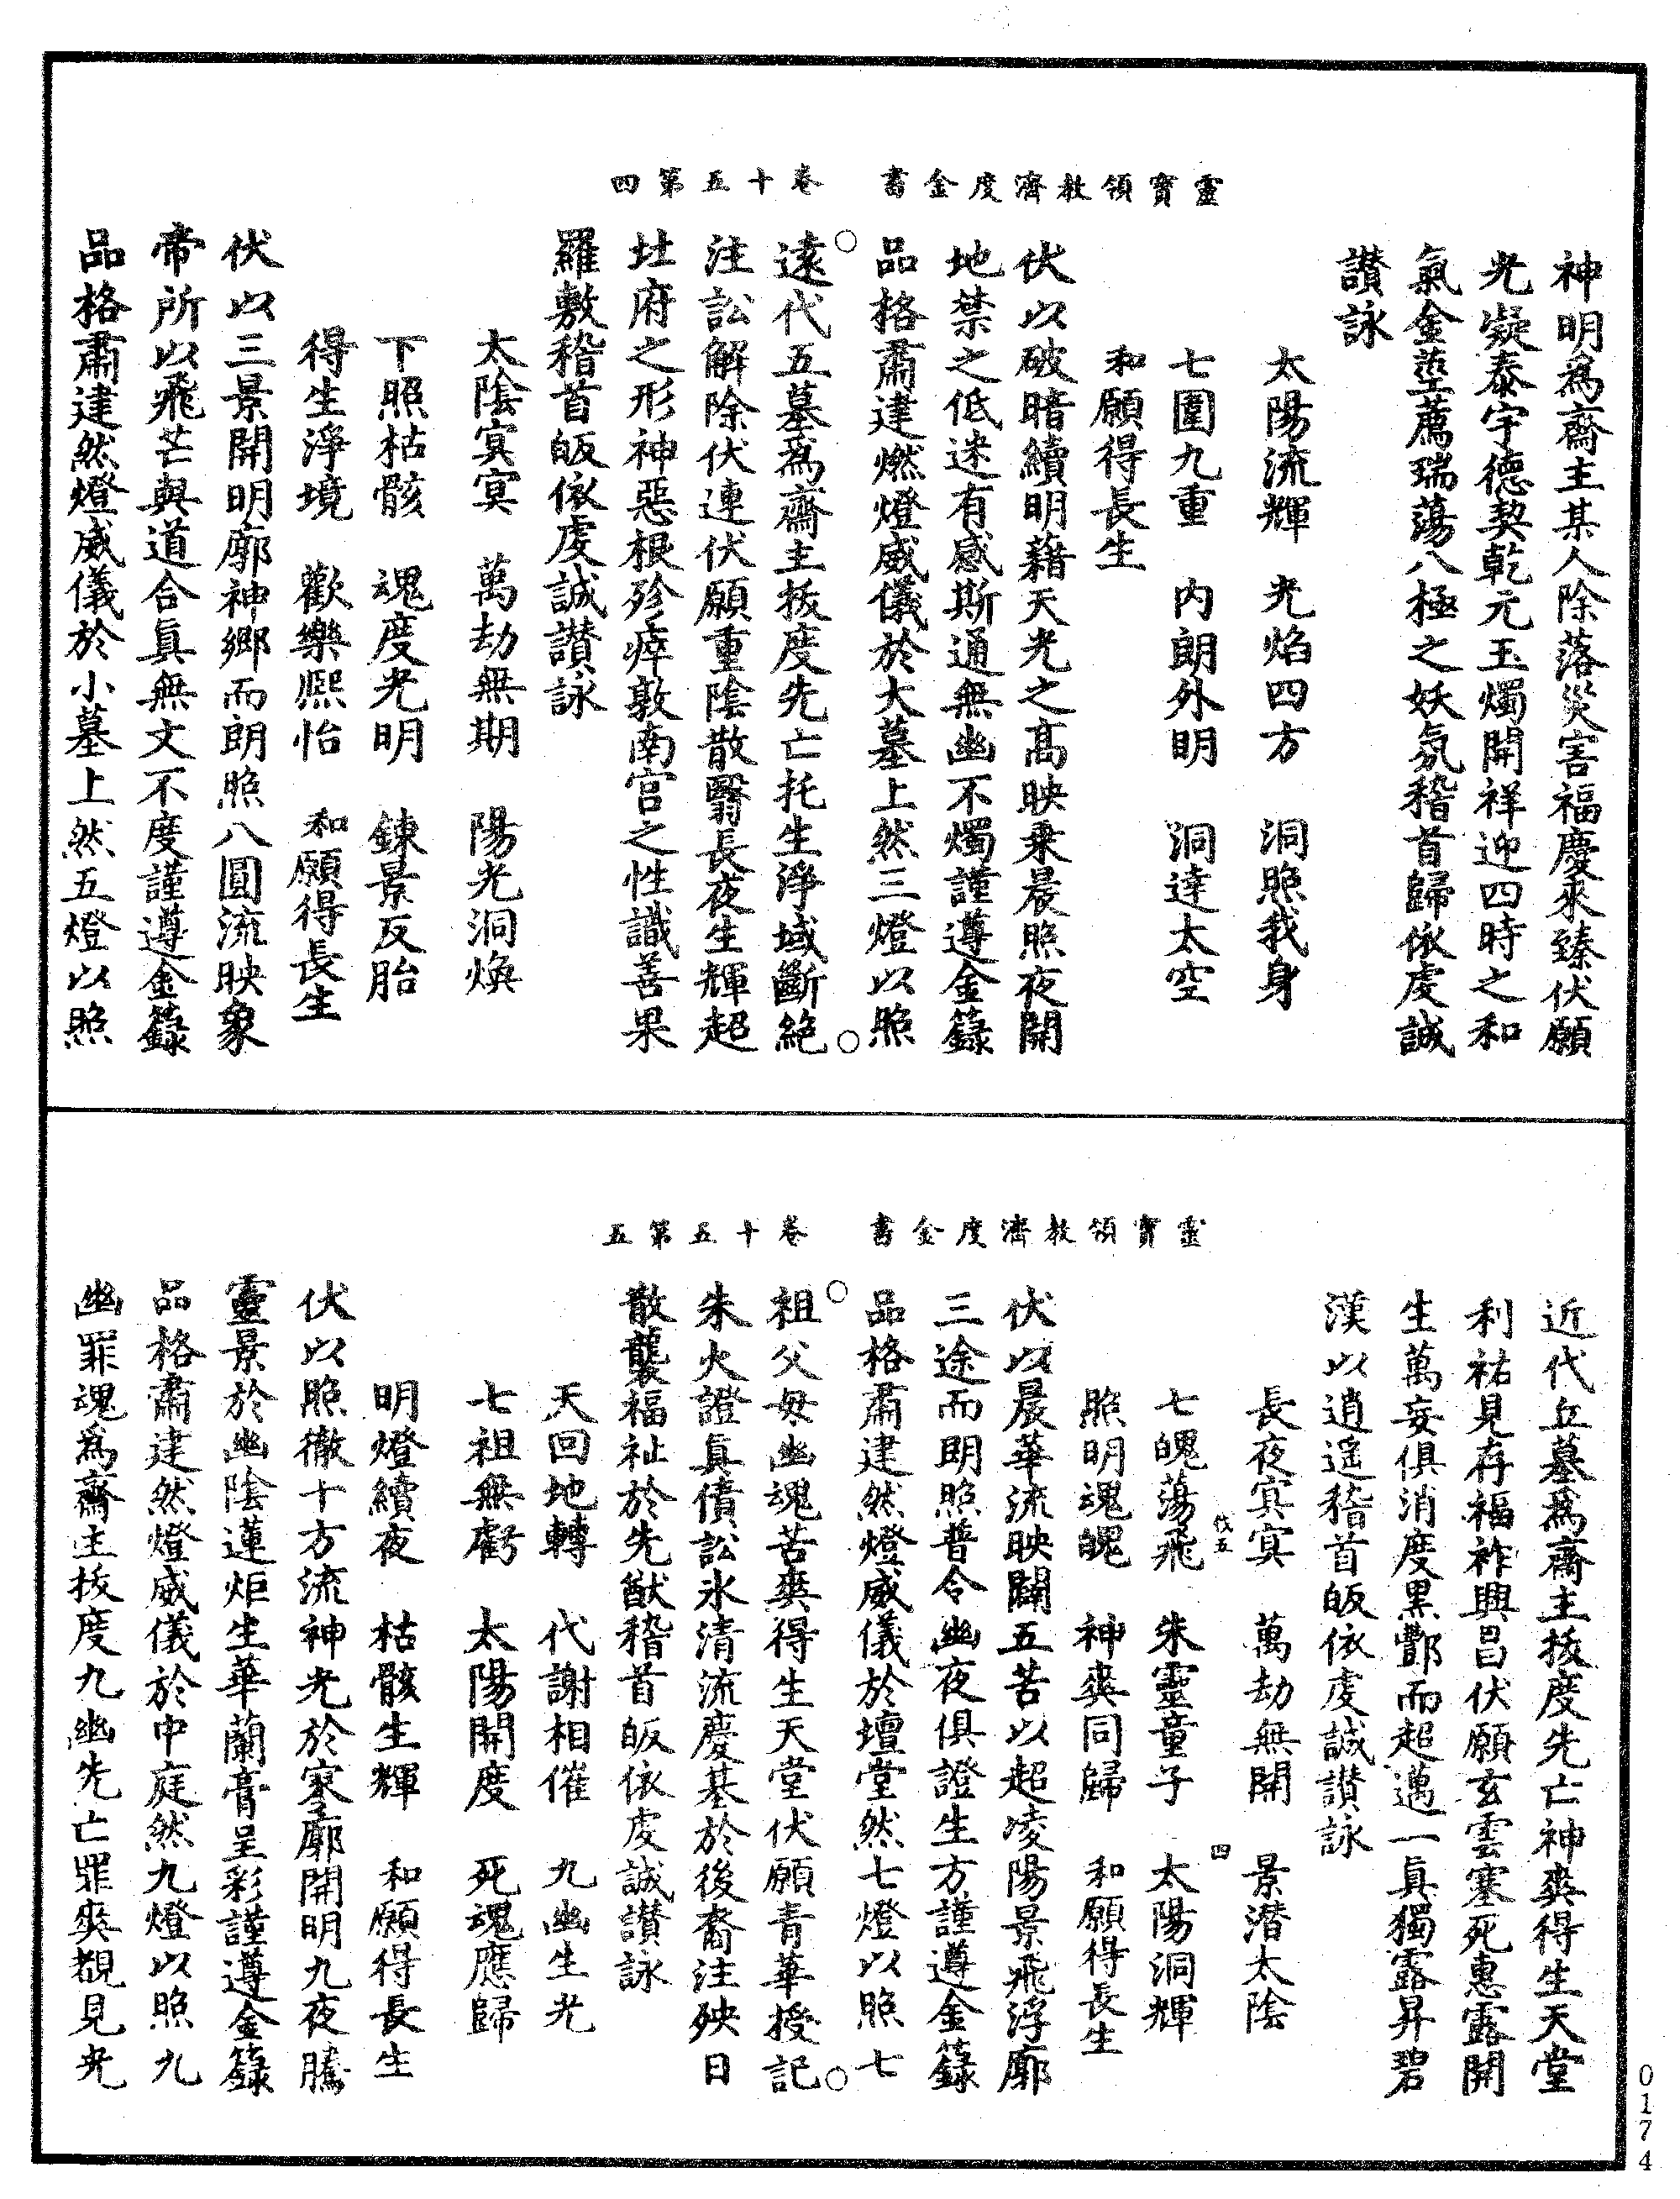 靈寶領教濟度金書　卷十五第四
神明為齋主某人除落災害福慶來臻伏願
光凝泰宇德契乾元玉燭開祥迎四時之和
氣金莖薦瑞蕩八極之妖氛稽首歸依虔誠
讃詠
太陽流輝　光焰四方　洞照我身
七圍九重　內朗外明　洞達太空
和願得長生
伏以破暗續明藉天光之高映乘晨照夜開
地禁之低迷有感斯通無幽不燭謹遵金籙
品格肅建燃燈威儀於大墓上然三燈以照
遠代五墓為齋主拔度先亡托生淨域斷絕
注訟解除伏連伏願重陰散翳長夜生輝超
圵府之形神惡根殄瘁敦南宮之性識善果
羅敷稽首皈依虔誠讃詠
太陰冥冥　萬劫無期　陽光洞煥
下照枯骸　魂度光明　鍊景反胎
得生淨境　歡樂熙怡　和願得長生
伏以三景開明廓神鄉而朗照八圓流映象
帝所以飛芒與道合真無文不度謹遵金籙
品格肅建然燈威儀於小墓上然五燈以照
靈寶領教濟度金書　卷十五第五
近代丘墓為齋主拔度先亡神爽得生天堂
利祐見存福祚興昌伏願玄雲塞死惠露開
生萬妄俱消度黑酆而超邁一真獨露昇碧
漢以逍遙稽首皈依虔誠讃詠
長夜冥冥　萬劫無開　景潜太陰
伐五　四
七魄蕩飛　朱靈童子　太陽洞輝
照明魂魄　神爽同歸　和願得長生
伏以晨華流映闢五苦以超凌陽景飛浮廓
三途而朗照普令幽夜俱證生方謹遵金籙
品格肅建然燈威儀於壇堂然七燈以照七
祖父母幽魂苦爽得生天堂伏願青華授記
朱火證真債訟氷清流慶基於後裔注殃日
散襲福祉於先猷稽首皈依虔誠讃詠
天回地轉　代謝相催　九幽生光
七祖無虧　太陽開度　死魂應歸
明燈續夜　枯骸生輝　和願得長生
伏以照徹十方流神光於寥廓開明九夜騰
靈景於幽陰蓮炬生華蘭膏呈彩謹遵金籙
品格肅建然燈威儀於中庭然九燈以照九
幽罪魂為齋主拔度九幽先亡罪爽覩見光
0174